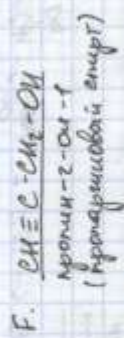 F. CH≡C-CH₂-OH
пропин-2-ол-1
(пропаргиловый спирт)